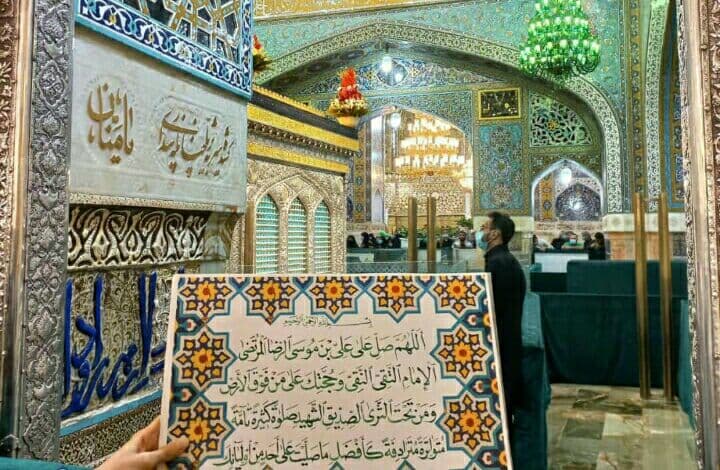 بسم الله الرحمن الرحیم
اَللّهُمَّ صَلِّ عَلى عَلِیِّ بْنِ مُوسَى الرِّضَا الْمُرْتَضى
الاِمامِ التَّقِیِّ النَّقِیِّ وَ حُجَّتِكَ عَلى مَنْ فَوْقَ الاَرْضِ
وَ مَنْ تَحْتَ الثَّرى الصِّدّیقِ الشَّهیدِ صَلاةً كَثیرَةً تامَّةً
مُتَواتِرَةً مُتَرادِفَةً كَاَفْضَلِ ما صَلَّیْتَ عَلى اَحَدٍ مِنْ اَوْلِیائِكَ